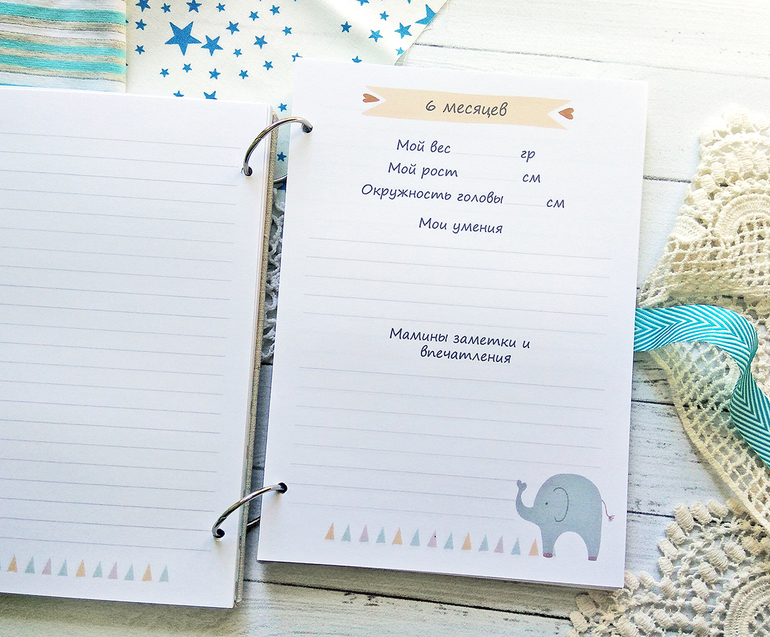 6 месяцев
Мой вес гр
Мой рост см
Окружность головы см
Мои умения
Мамины заметки и
впечатления